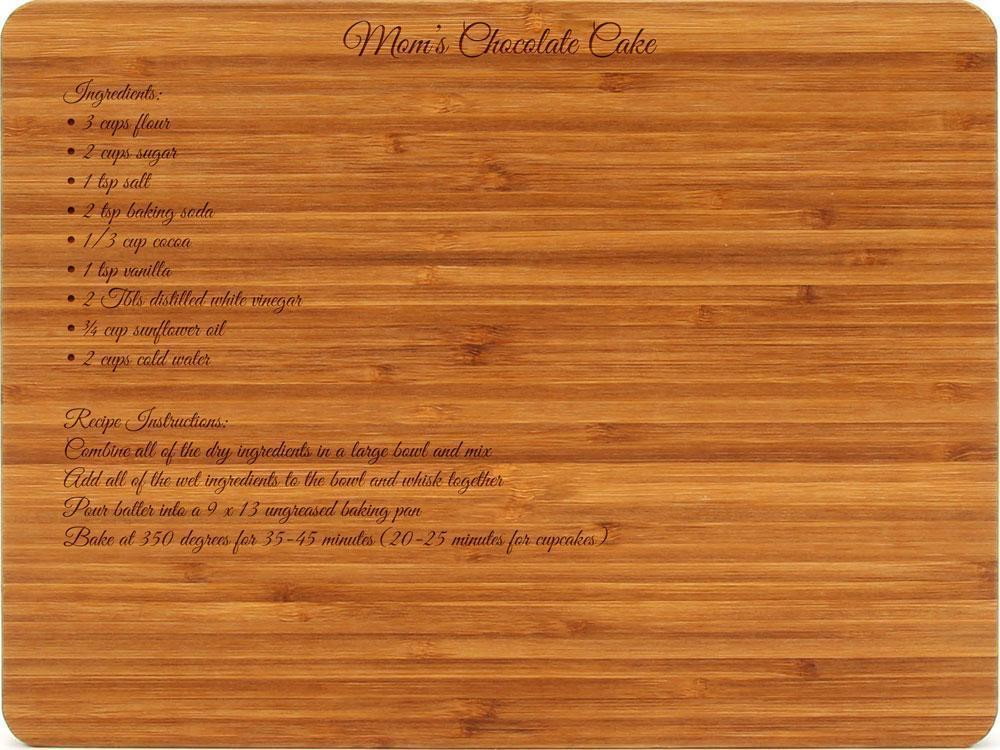 Mom's Chocolate Cake
Ingredients:
• 3 cups flour
• 2 cups sugar
• 1 tsp salt
• 2 tsp baking soda
• 1/3 cup cocoa
• 1 tsp vanilla
• 2 Tbls distilled white vinegar
• ¾ cup sunflower oil
• 2 cups cold water
Recipe Instructions:
Combine all of the dry ingredients in a large bowl and mix
Add all of the wet ingredients to the bowl and whisk together
Pour batter into a 9 x 13 ungreased baking pan
Bake at 350 degrees for 35-45 minutes (20-25 minutes for cupcakes)